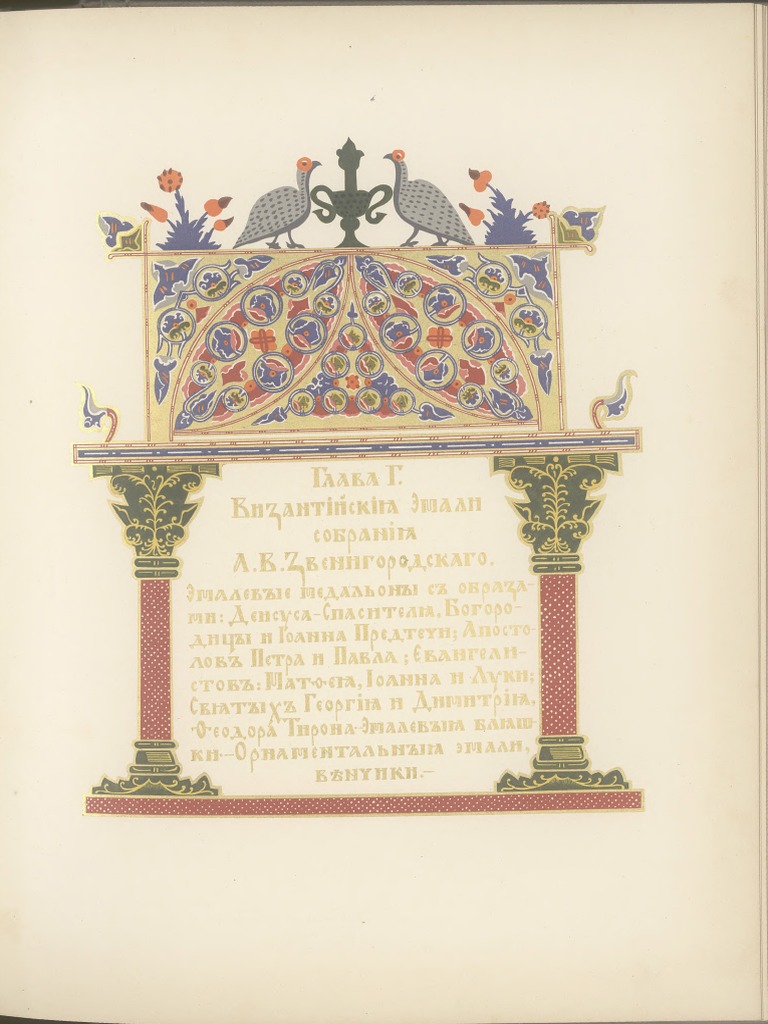 Глава Г.
Византійскія Эмали
собранія
А. В. Звенигородскаго.
Эмалевые медальоны съ образа-
ми: Деисуса-Спасителя, Богоро-
дицы и Іоанна Предтечи; Апосто-
ловъ Петра и Павла; Евангели-
стовъ: Матѳея, Іоанна и Луки;
Святыхъ Георгія и Димитрія,
Ѳеодора Тирона-Эмалевыя бляш-
ки.-Орнаментальныя эмали,
вѣнчики.-